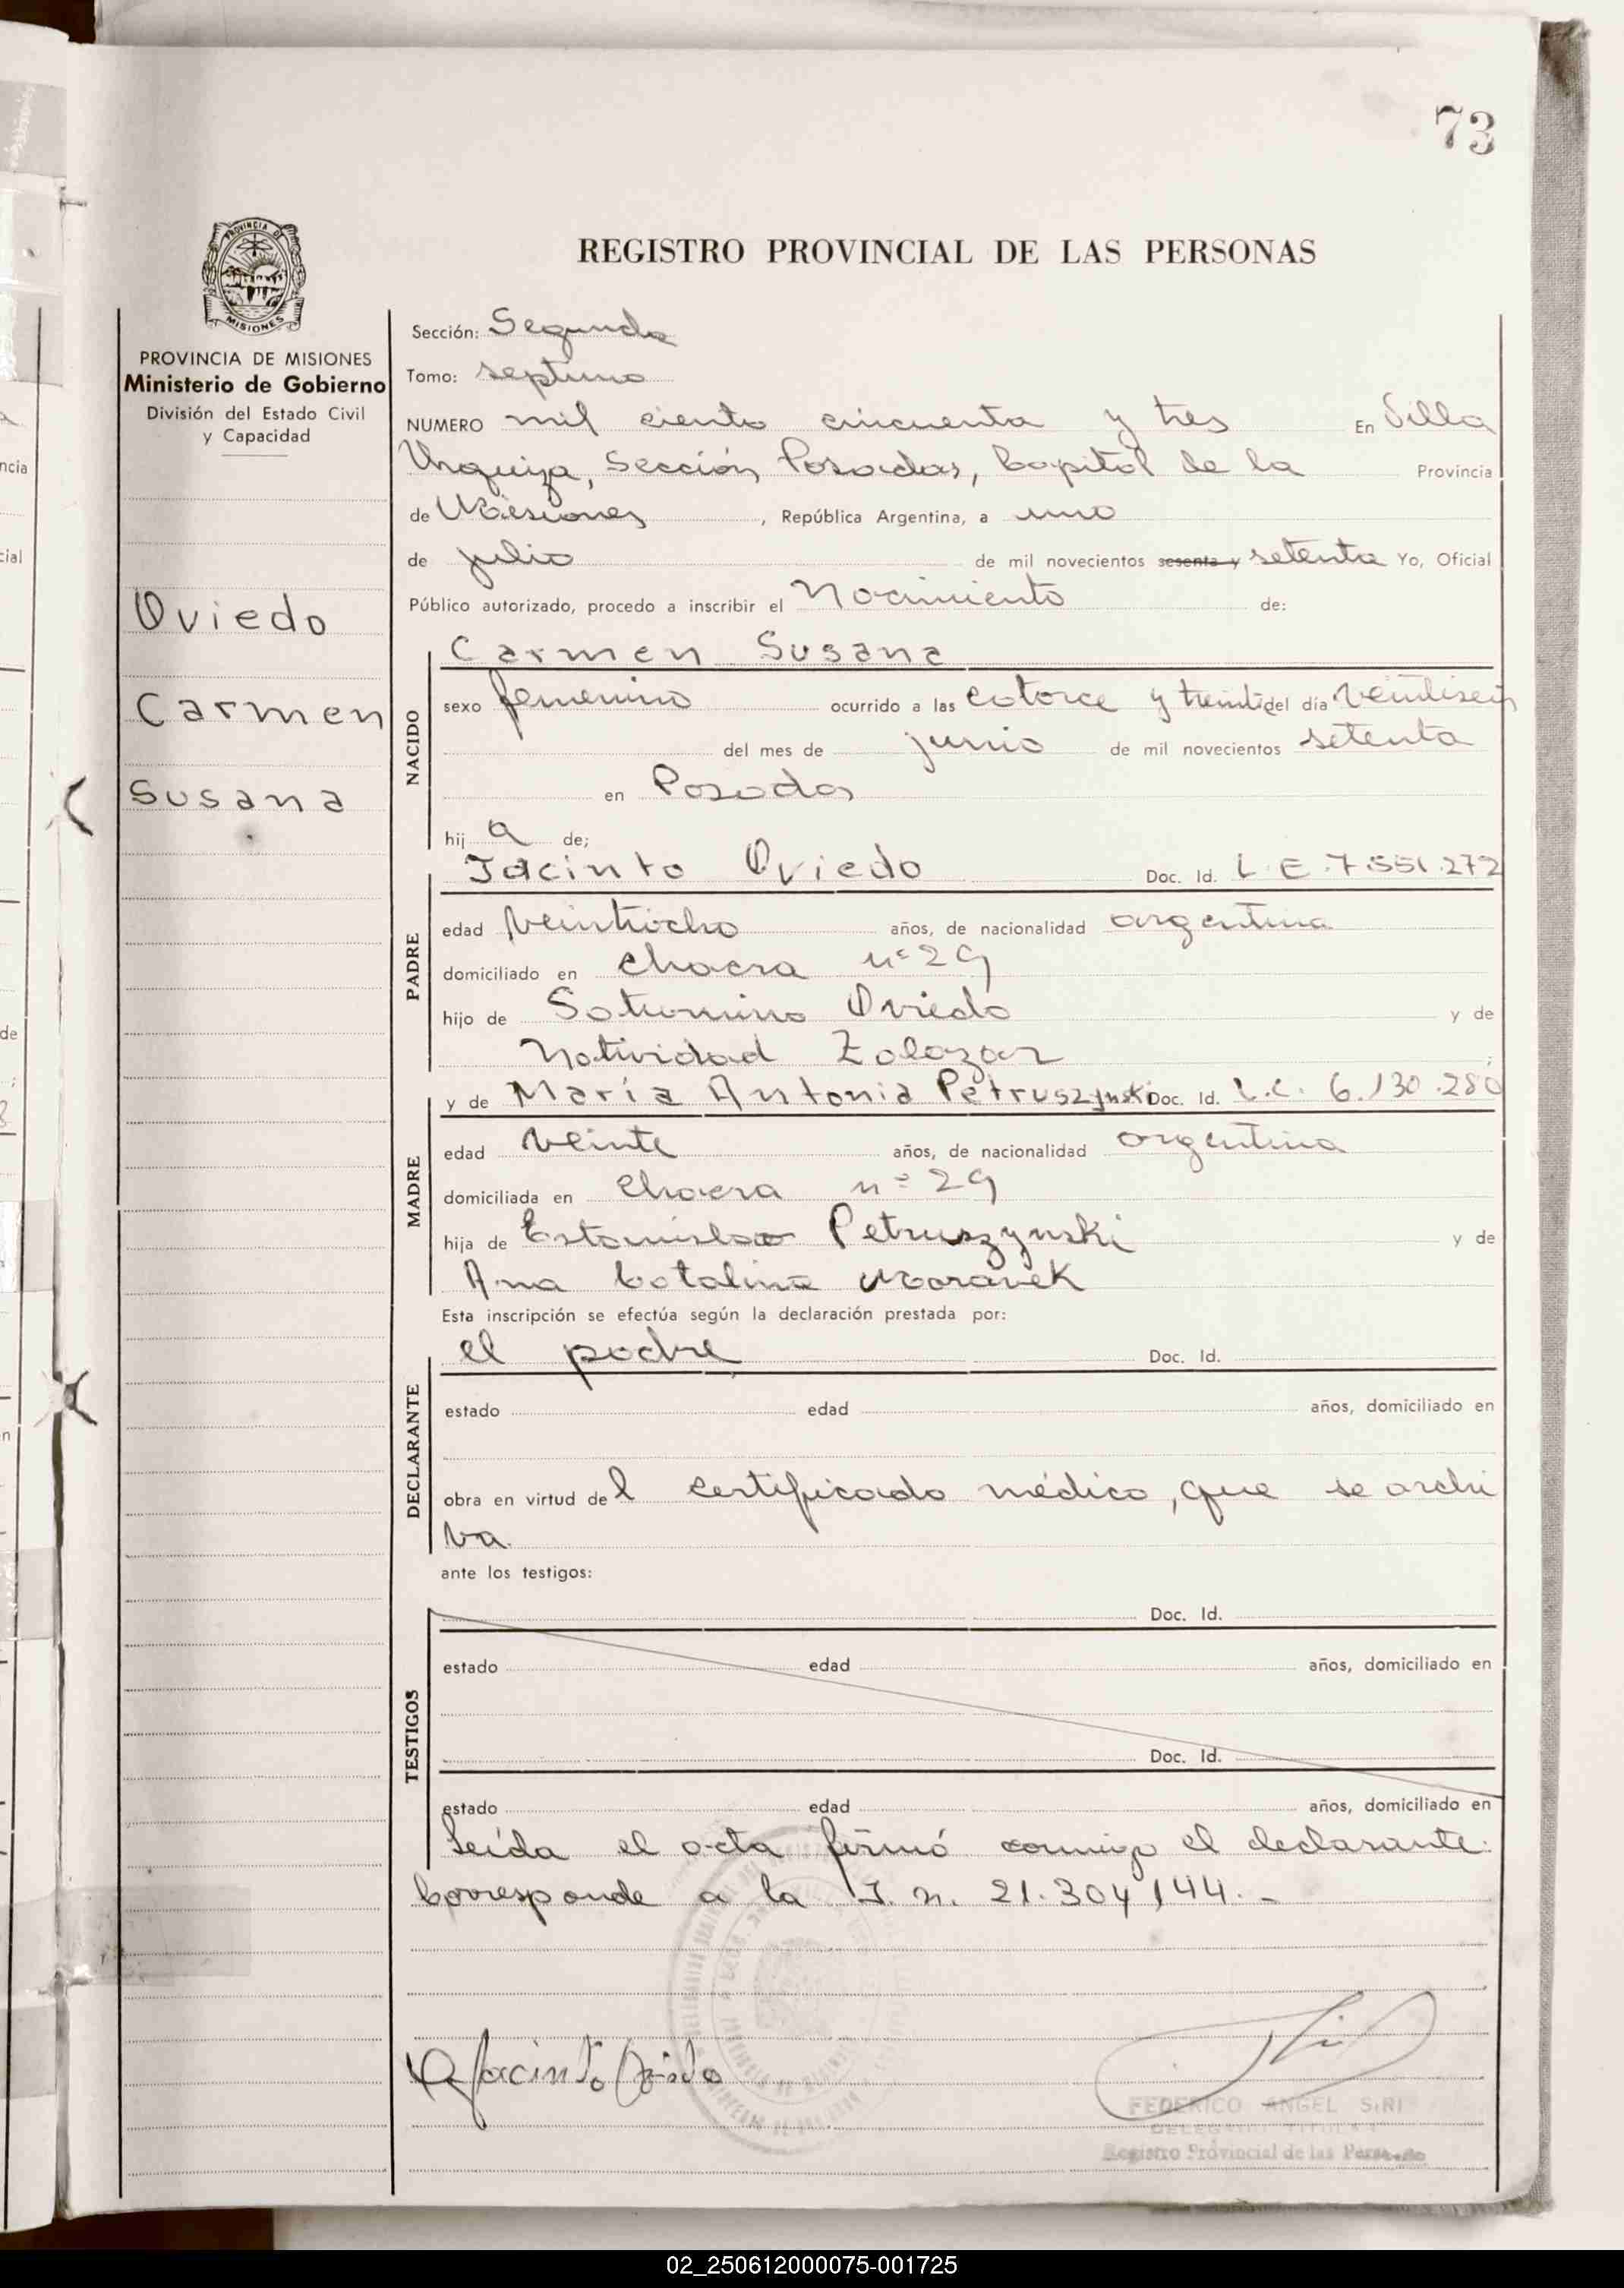 73
REGISTRO PROVINCIAL DE LAS PERSONAS
PROVINCIA DE
MISIONES
PROVINCIA DE MISIONES
Ministerio de Gobierno
División del Estado Civil
y Capacidad
Oviedo
Carmen
Susana
Sección: Segunda
Tomo: septimo
NUMERO mil ciento cincuenta y tres En Villa
Urquiza, Sección Posadas, Capital de la Provincia
de Misiones, República Argentina, a uno
de julio de mil novecientos sesenta y setenta Yo, Oficial
Público autorizado, procedo a inscribir el Nacimiento de:
NACIDO
Carmen Susana
sexo femenino ocurrido a las catorce y treinta del día veintiseis
del mes de junio de mil novecientos setenta
en Posadas
hij a de;
PADRE
Jacinto Oviedo Doc. Id. L.E. 7.551.272
edad veintiocho años, de nacionalidad argentina
domiciliado en chacra nº 29
hijo de Saturnino Oviedo y de
Natividad Zalazar ;
MADRE
y de María Antonia Petruszynski Doc. Id. L.C. 6.130.280
edad veinte años, de nacionalidad argentina
domiciliada en chacra nº 29
hija de Estanislao Petruszynski y de
Ana Catalina Moravek
Esta inscripción se efectúa según la declaración prestada por:
DECLARANTE
el padre Doc. Id.
estado edad años, domiciliado en
obra en virtud de l certificado médico, que se archi
va.
ante los testigos:
TESTIGOS
Doc. Id.
estado edad años, domiciliado en
Doc. Id.
estado edad años, domiciliado en
Leída el acta firmó conmigo el declarante.
Corresponde a la I. n. 21.304.144.-
Jacinto Oviedo
FEDERICO ANGEL SIRI
DELEGADO TITULAR
Registro Provincial de las Personas
02_250612000075-001725